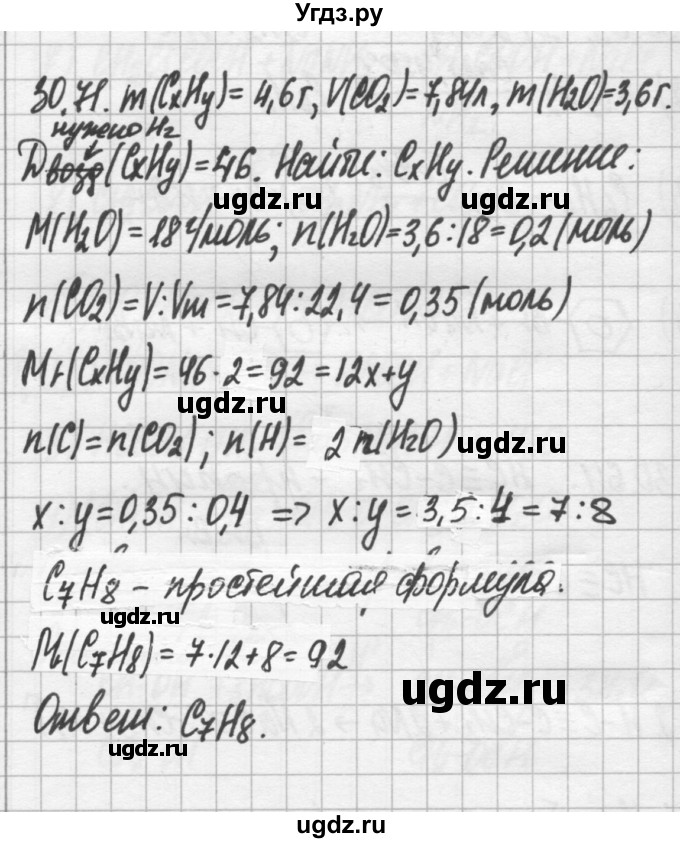 Угдз.ру
30.71. m(CxHy)= 4,6г, V(CO₂)=7,84л, m(H₂O)=3,6г.
нужено H₂
Dвозд(CxHy)=46. Найти: CxHy. Решение:
ugdz.ru
M(H₂O)=18г/моль; n(H₂O)=3,6:18=0,2(моль)
n(CO₂)=V:Vm=7,84:22,4=0,35(моль)
Mr(CxHy)=46·2=92=12x+y
ugdz.ru
n(C)=n(CO₂); n(H)= 2n(H₂O)
ugdz.ru
x:y=0,35:0,4 => x:y=3,5:4=7:8
C₇H₈ - простейшая формула.
ugdz.ru
Mr(C₇H₈)=7·12+8=92
ugdz.ru
Ответ: C₇H₈.
ugdz.ru
ugdz.ru